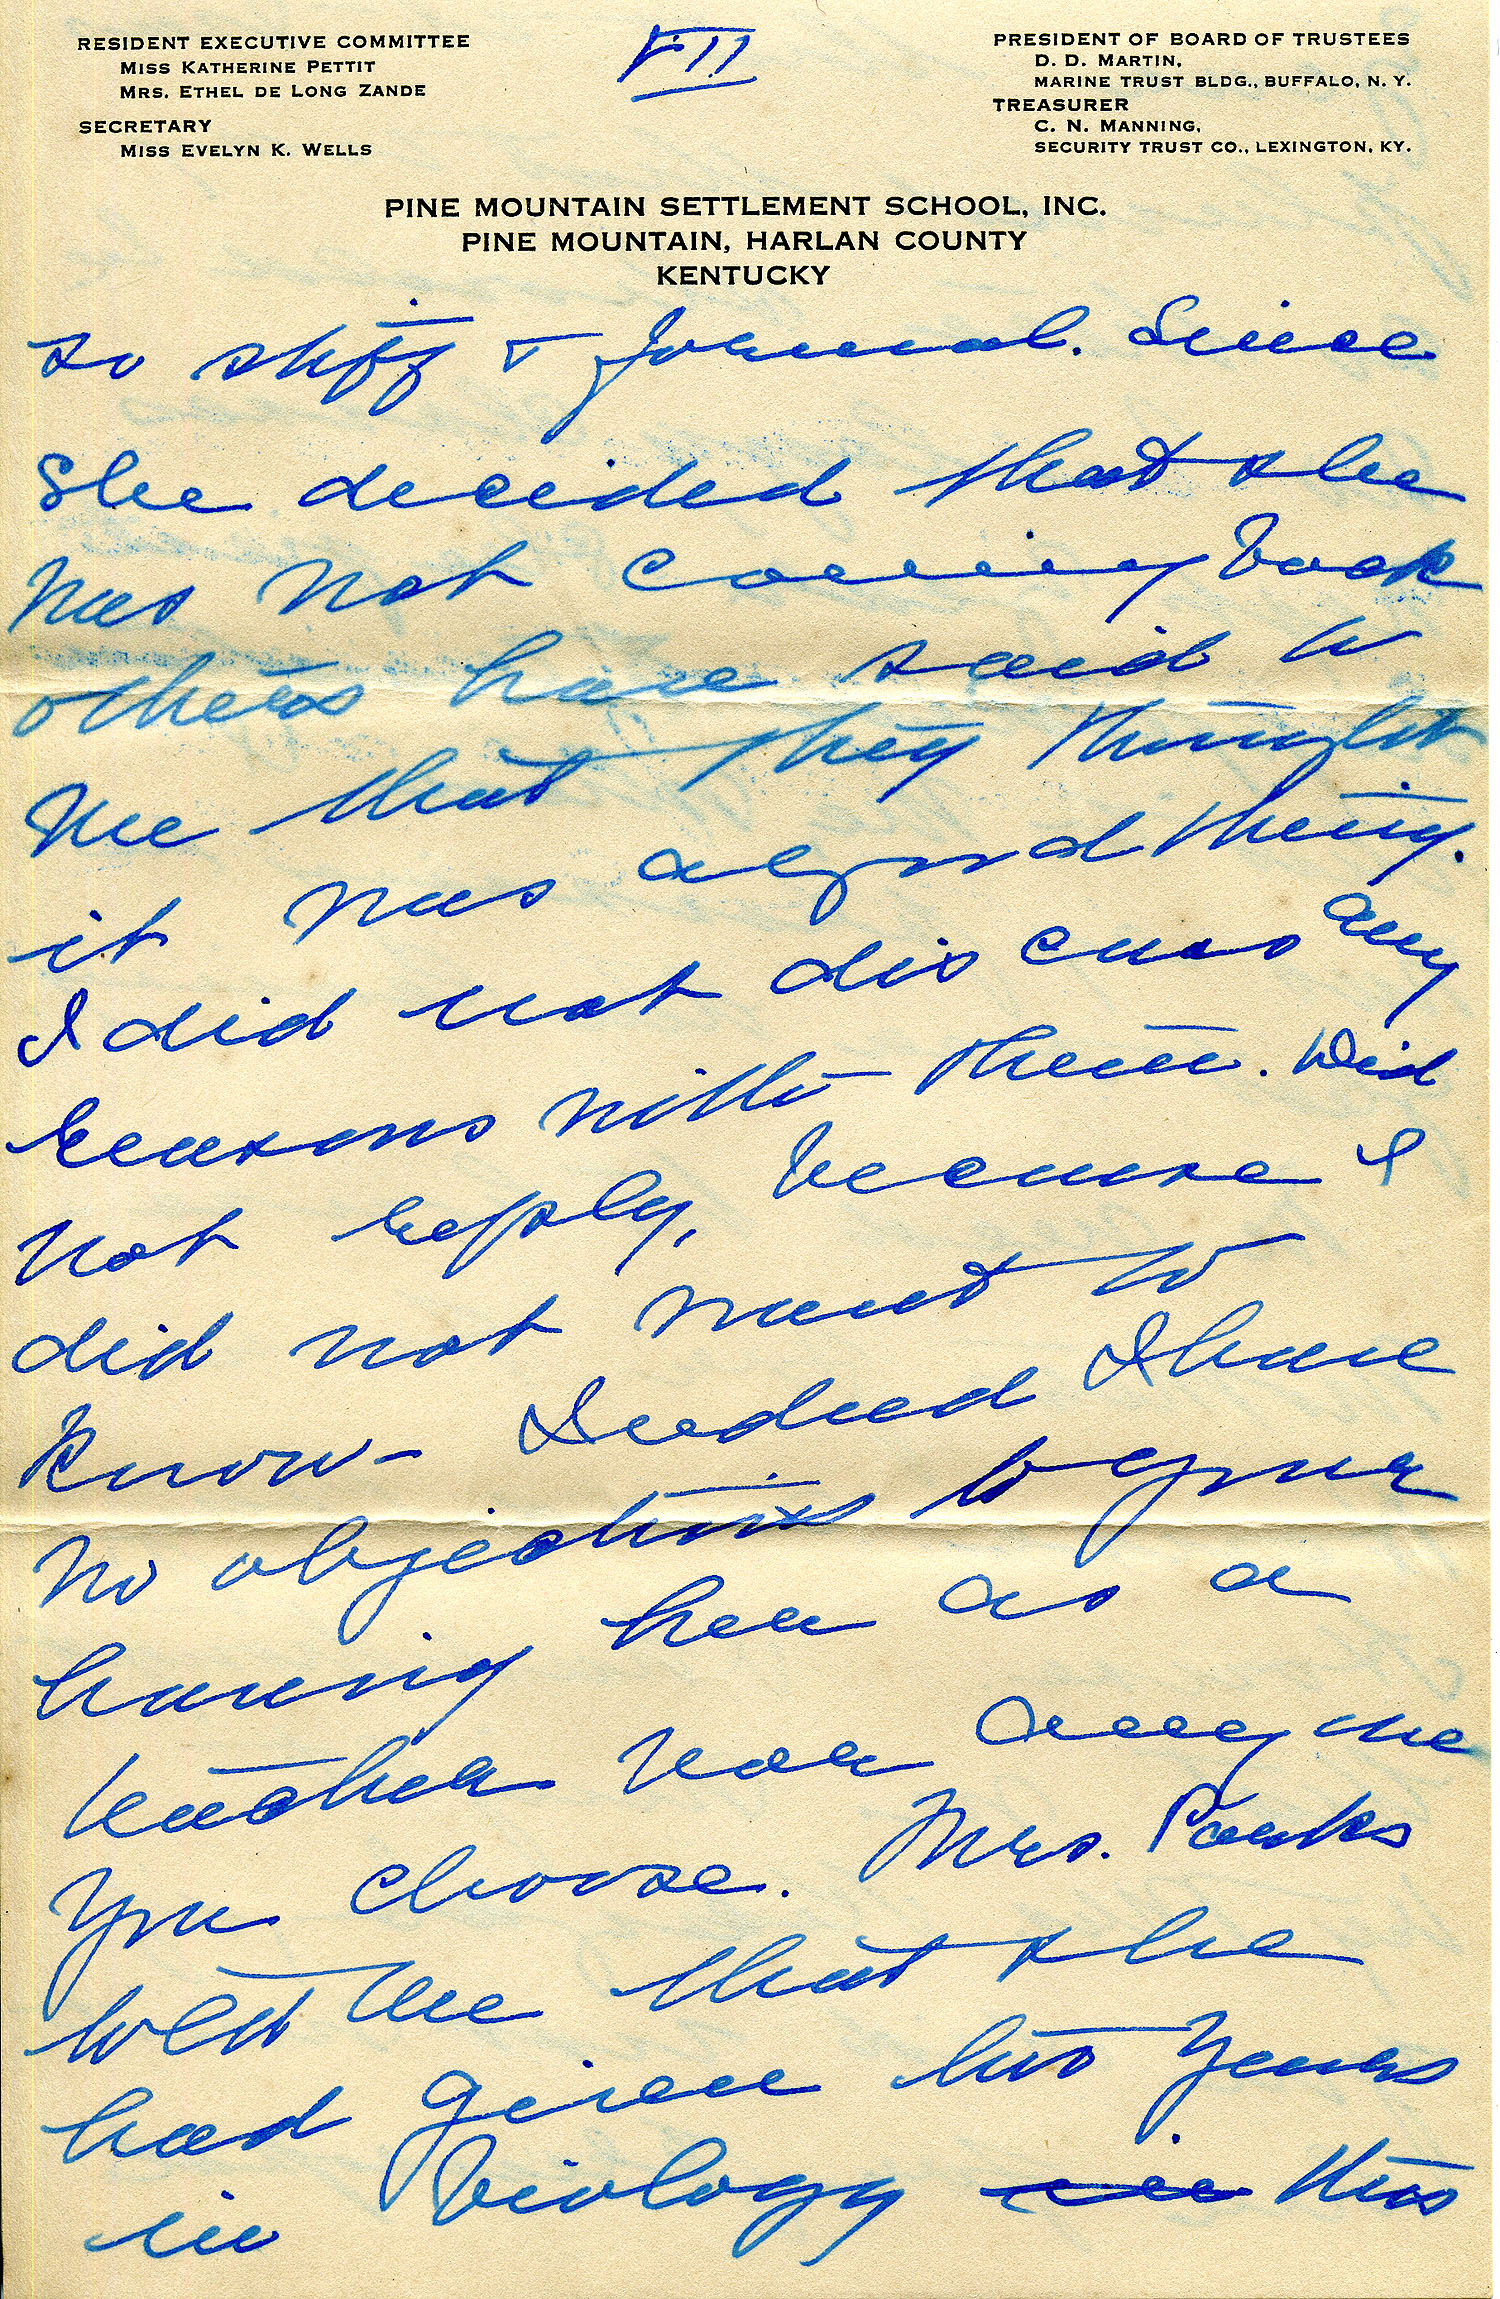 RESIDENT EXECUTIVE COMMITTEE
MISS KATHERINE PETTIT
MRS. ETHEL DE LONG ZANDE
SECRETARY
MISS EVELYN K. WELLS
VII
PRESIDENT OF BOARD OF TRUSTEES
D. D. MARTIN,
MARINE TRUST BLDG., BUFFALO, N. Y.
TREASURER
C. N. MANNING,
SECURITY TRUST CO., LEXINGTON, KY.
PINE MOUNTAIN SETTLEMENT SCHOOL, INC.
PINE MOUNTAIN, HARLAN COUNTY
KENTUCKY
so stiff & formal. Since
She decided that she
was not coming back
others have said to
me that they thought
it was a good thing.
I did not discuss any
reasons with them. Did
not reply, because I
did not want to
know - Indeed I have
no objections to your
having her as a
teacher nor any one
you choose. Mrs. Parks
told me that she
had given two years
in biology in this